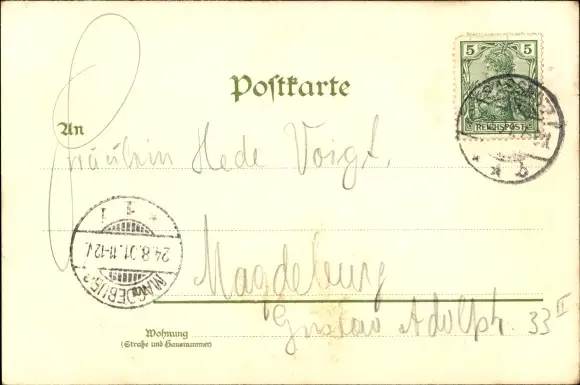 5 5
REICHSPOST
Postkarte
An
Fräulein Hede Voigt,
Magdeburg
Gustav Adolfstr. 33 II
MAGDEBURG
24.8.01.11-12V.
* 1 i
* * b
Wohnung
(Straße und Hausnummer)